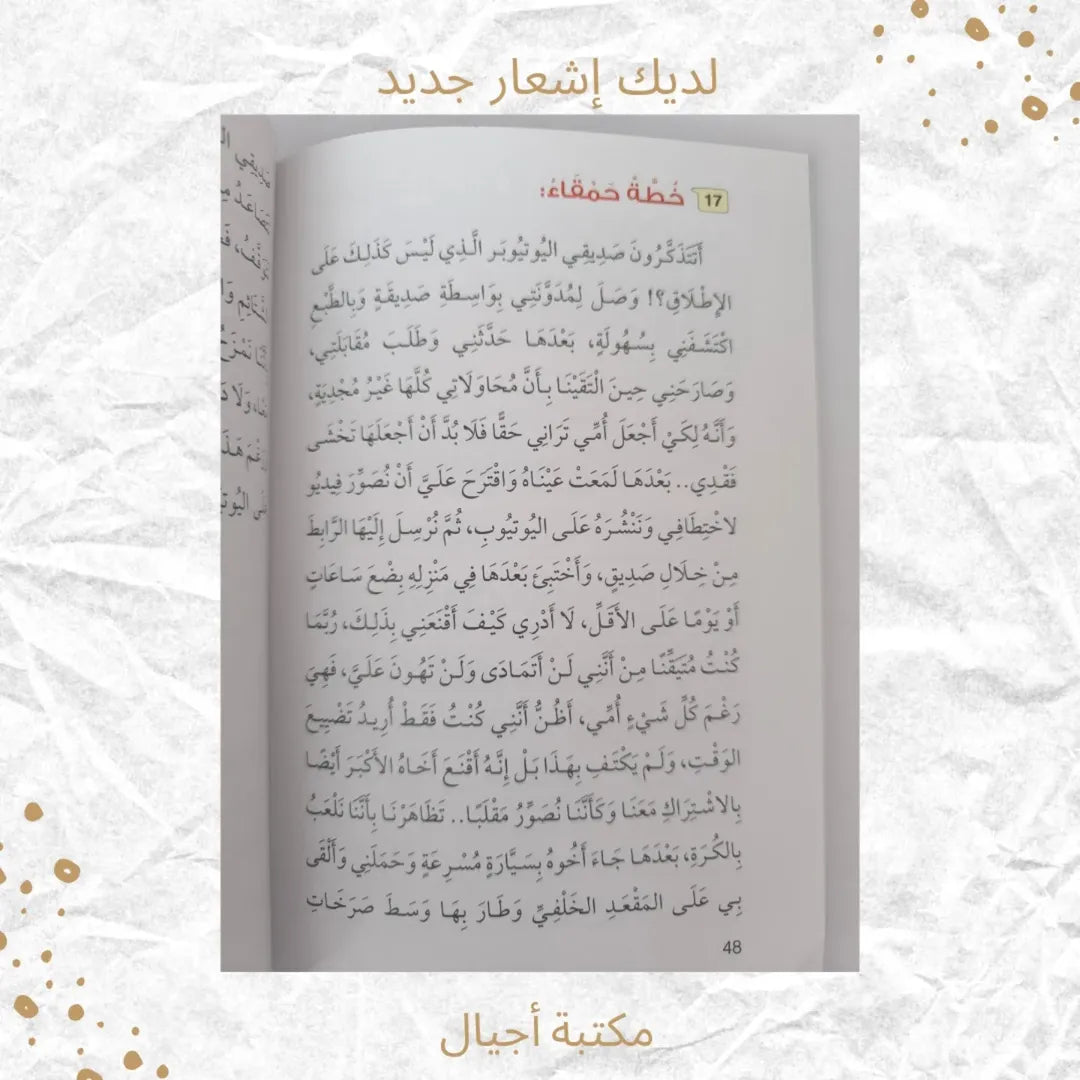 لديك إشعار جديد
17 خُطَّةٌ حَمْقَاءُ:
أَتَتَذَكَّرُونَ صَدِيقِي اليُوتيُوبَر الَّذِي لَيْسَ كَذَلِكَ عَلَى
الإِطْلَاقِ؟! وَصَلَ لِمُدَوَّنَتِي بِوَاسِطَةِ صَدِيقَةٍ وَبِالطَّبْعِ
اكْتَشَفَنِي بِسُهُولَةٍ، بَعْدَهَا حَدَّثَنِي وَطَلَبَ مُقَابَلَتِي،
وَصَارَحَنِي حِينَ الْتَقَيْنَا بِأَنَّ مُحَاوَلَاتِي كُلَّهَا غَيْرُ مُجْدِيَةٍ،
وَأَنَّهُ لِكَيْ أَجْعَلَ أُمِّي تَرَانِي حَقًّا فَلَا بُدَّ أَنْ أَجْعَلَهَا تَخْشَى
فَقْدِي.. بَعْدَهَا لَمَعَتْ عَيْنَاهُ وَاقْتَرَحَ عَلَيَّ أَنْ نُصَوِّرَ فِيديُو
لاخْتِطَافِي وَنَنْشُرَهُ عَلَى اليُوتيُوبِ، ثُمَّ نُرْسِلَ إِلَيْهَا الرَّابِطَ
مِنْ خِلَالِ صَدِيقٍ، وَأَخْتَبِئَ بَعْدَهَا فِي مَنْزِلِهِ بِضْعَ سَاعَاتٍ
أَوْ يَوْمًا عَلَى الأَقَلِّ، لَا أَدْرِي كَيْفَ أَقْنَعَنِي بِذَلِكَ، رُبَّمَا
كُنْتُ مُتَيَقِّنًا مِنْ أَنَّنِي لَنْ أَتَمَادَى وَلَنْ تَهُونَ عَلَيَّ، فَهِيَ
رَغْمَ كُلِّ شَيْءٍ أُمِّي، أَظُنُّ أَنَّنِي كُنْتُ فَقَطْ أُرِيدُ تَضْيِيعَ
الوَقْتِ، وَلَمْ يَكْتَفِ بِهَذَا بَلْ إِنَّهُ أَقْنَعَ أَخَاهُ الأَكْبَرَ أَيْضًا
بِالاشْتِرَاكِ مَعَنَا وَكَأَنَّنَا نُصَوِّرُ مَقْلَبًا.. تَظَاهَرْنَا بِأَنَّنَا نَلْعَبُ
بِالكُرَةِ، بَعْدَهَا جَاءَ أَخُوهُ بِسَيَّارَةٍ مُسْرِعَةٍ وَحَمَلَنِي وَأَلْقَى
بِي عَلَى المَقْعَدِ الخَلْفِيِّ وَطَارَ بِهَا وَسَطَ صَرَخَاتِ
48
مكتبة أجيال